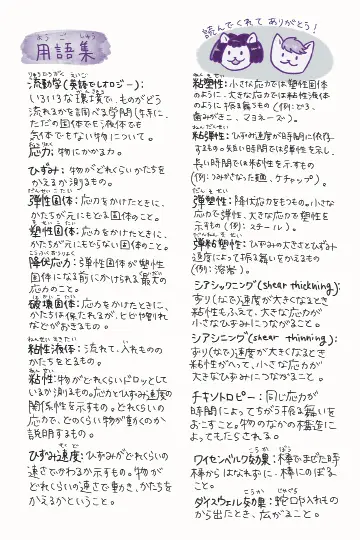 ようごしゅう
用語集
りゅうどうがく えいご
流動学(英語でレオロジー):
いろいろな環境で、ものがどう
流れるかを調べる学問(特に、
ただの固体でも液体でも
気体でもない物について。
おうりょく
応力:物にかかる力。
ひずみ:物がどれくらいかたちを
かえるか測るもの。
だんせいこたい
弾性固体:応力をかけたときに、
かたちが元にもどる固体のこと。
そせいこたい
塑性固体:応力をかけたときに、
かたちが元にもどらない固体のこと。
こうふくおうりょく
降伏応力:弾性固体が塑性
固体になる前にかけられる最大の
応力のこと。
はかいこたい
破壊固体:応力をかけたときに、
かたちは保たれるが、ヒビや割れ
などがおきるもの。
ねんせいえきたい
粘性液体:流れて、入れものの
かたちをとるもの。
ねんせい
粘性:物がどれくらいドロッとして
いるか測るもの。応力とひずみ速度の
関係性を示すもの。どれくらいの
応力で、どのくらい物が動くのか
説明するもの。
ひずみ速度:ひずみがどれくらいの
速さでかわるか示すもの。物が
どれくらいの速さで動き、かたちを
かえるかということ。
読んでくれてありがとう!
ねんそせい
粘塑性:小さな応力では塑性固体
のように、大きな応力では粘性液体
のように振る舞うもの(例:どろ、
歯みがきこ、マヨネーズ)。
ねんだんせい
粘弾性:ひずみ速度が時間に依存
するもの。短い時間では弾性を示し、
長い時間では粘性を示すもの
(例:うみがさなった麺、ケチャップ)。
だんそせい
弾塑性:降伏応力をもつもの。小さな
応力で弾性、大きな応力で塑性を
示すもの(例:スチール)。
だんねんそせい
弾粘塑性:ひずみの大きさとひずみ
速度によって振る舞いをかえるもの
(例:溶岩)。
シアシックニング(shear thickning):
ずり(なで)速度が大きくなるとき
粘性もふえて、大きな応力が
小さなひずみにつながること。
シアシニング(shear thinning):
ずり(なで)速度が大きくなるとき
粘性がへって、小さな応力が
大きなひずみにつながること。
チキソトロピー:同じ応力が
時間によってちがう振る舞いを
おこすこと。物のなかの構造に
よってもたらされる。
こうか ぼう
ワイセンベルク効果:棒でまぜた時
棒からはなれずに、棒にのぼる
こと。
こうか じゃぐち
ダイスウェル効果:蛇口や入れもの
から出たとき、広がること。